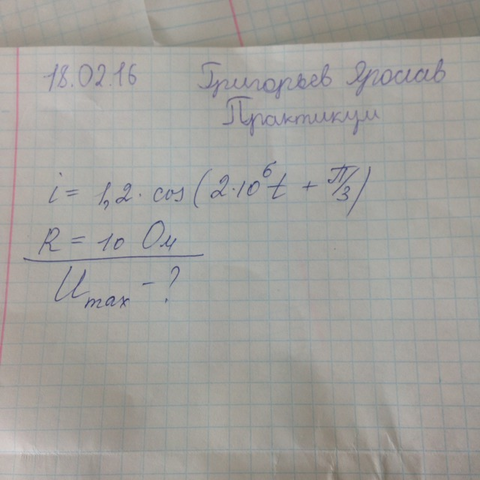 18.02.16 Григорьев Ярослав
Практикум
i = 1,2 · cos (2·10⁶t + π/3)
R = 10 Ом
Umax - ?